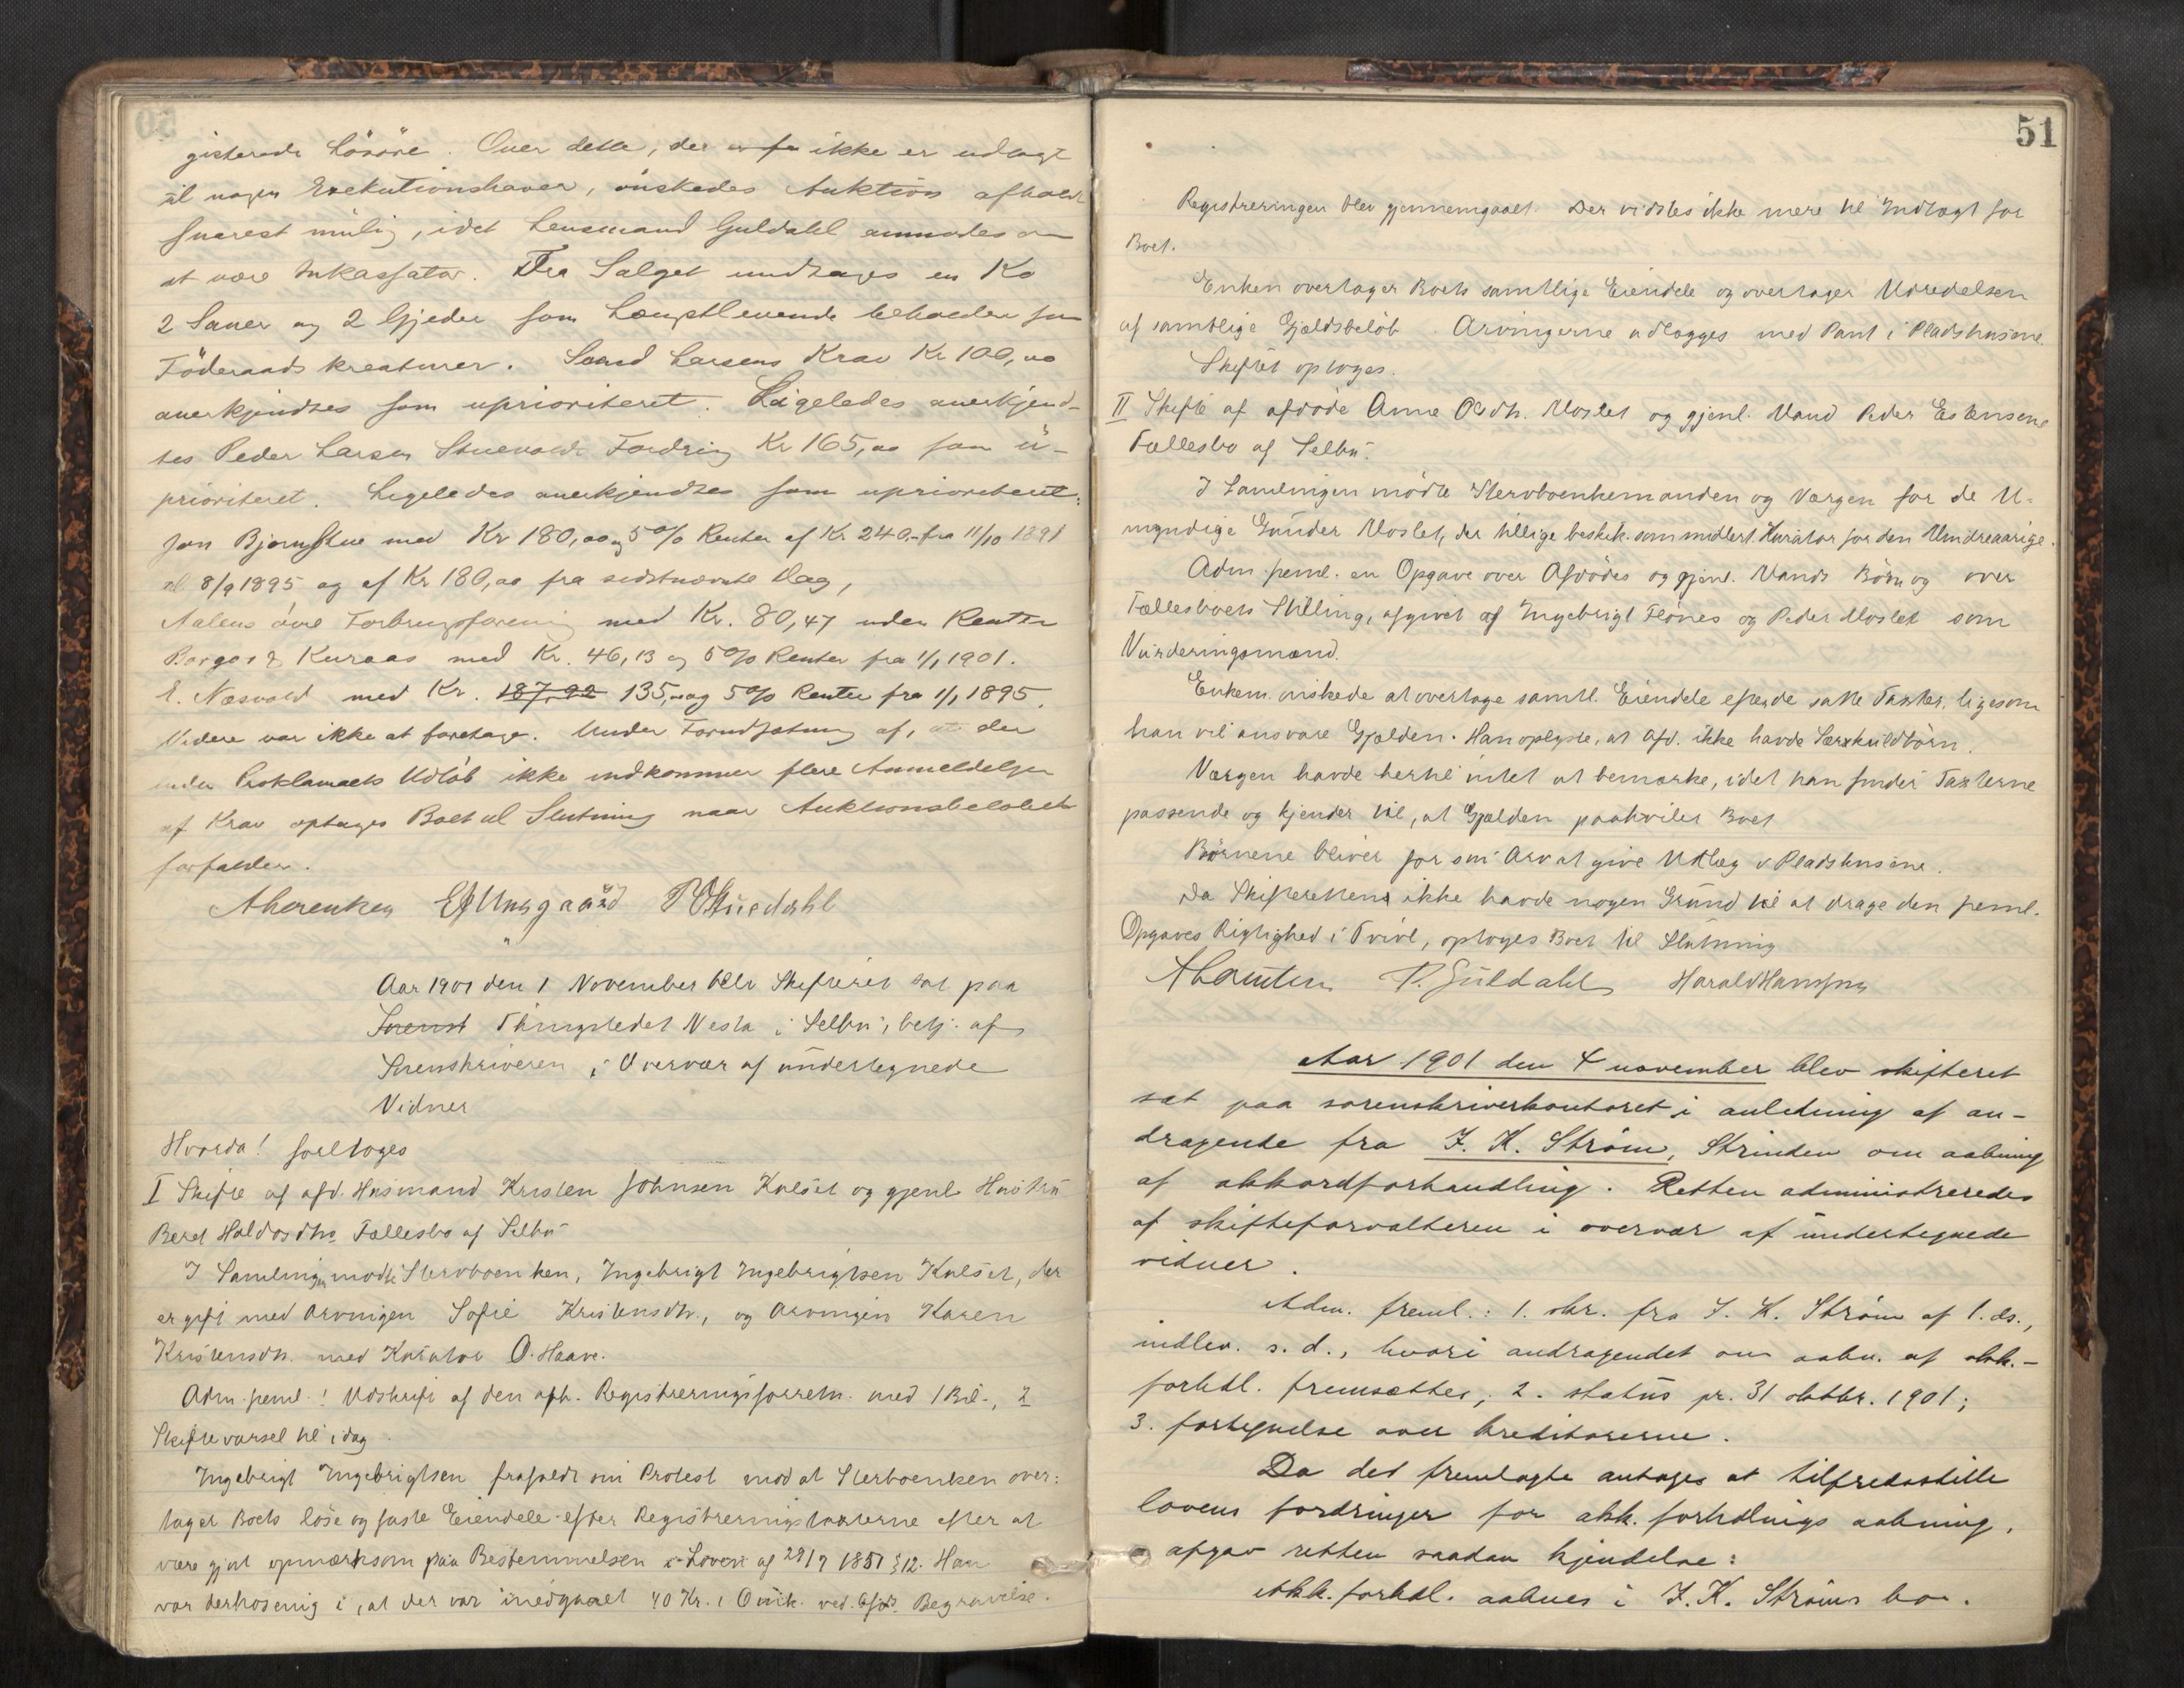 gisterede Lösöre. Over dette, der ikke er udlagt
til nogen Exekutionshaver, önskedes Auktion afholdt
snarest mulig, idet Lensmand Guldahl anmodes om
at være Inkassator. Fra Salget undtages en Ko
2 Sauer og 2 Gjeder som Længstlevende beholder som
Föderaadskreaturer. Larsens Krav Kr 100,00
anerkjendtes som uprioriteret. Ligeledes anerkjend-
tes Peder Larsen Fordring Kr 165,00 som u-
prioriteret. Ligeledes anerkjendtes som uprioriteret:
Jon Bjørnstue med Kr 180,00 og 5% Renter af Kr 240.- fra 11/10 1891
til 8/9 1895 og af Kr 180,00 fra sidstnævnte Dag,
Aalens övre Forbrugsforening med Kr. 80,47 uden Renter
Borgos & Kuraas med Kr. 46,13 og 5% Renter fra 1/1 1901.
E. Næsvold med Kr. 187,92 135,00 og 5% Renter fra 1/1 1895.
Videre var ikke at foretage. Under Forudsætning af, at der
inden Proklamaets Udlöb ikke indkommer flere Anmeldelser
af Krav optages Boet til Slutning naar Auktionsbelöbet
forfalder.
P Guldahl
Aar 1901 den 1 November blev Skifteret sat paa
Thingstedet Nesta i Selbu, betj. af
Sorenskriveren i Overvær af undertegnede
Vidner
Hvorda! foretoges
I Skifte af afd. Husmand Kristen Johnsen Kulset og gjenl. Hustru
Beret Haldosdtrs Fællesbo af Selbu
I Samlingen mødte Stervboenken, Ingebrigt Ingebrigtsen Kulset, der
er gift med Arvingen Sofie Kristensdtr., og Arvingen Karen
Kristensdtr. med Kurator O. Haave.
Adm. freml.! Udskrift af den afh. Registreringsforretn. med 1 Bil., 2
Skiftevarsel til idag.
Ingebrigt Ingebrigtsen frafaldt sin Protest mod at Sterboenken over:
tager Boets løse og faste Eiendele efter Registreringstaxterne efter at
være gjort opmærksom paa Bestemmelsen i Loven af 29/7 1851 § 12. Han
var derhos enig i, at der var medgaaet 40 Kr. i Omk. ved Afd. Begravelse.
51
Registreringen blev gjennemgaaet. Der vidstes ikke mere til Indtægt for
Boet.
Enken overtager Boets samtlige Eiendele og overtager Udredelsen
af samtlige Gjældsbeløb. Arvingerne udlægges med Pant i Pladshusene.
Skiftet optoges.
II Skifte af afdøde Anne Olsdtr. Moslet og gjenl. Mand Peder Estensens
Fællesbo af Selbu.
I Samlingen mödte Stervboenkemanden og Værgen for de U-
myndige Gunder Moslet, der tillige beskik. som midlert. Kurator for den Mindreaarige.
Adm. freml. en Opgave over Afdödes og gjenl. Mands Börn og over
Fællesboets Stilling, afgivet af Ingebrigt Flönes og Peder Moslet som
Vurderingsmænd.
Enkem. önskede at overtage samtl. Eiendele efter de satte Taxter, ligesom
han vil ansvare Gjælden. Han oplyste, at Afd. ikke havde Særkuldbörn.
Værgen havde hertil intet at bemærke, idet han finder Taxterne
passende og kjender til, at Gjælden paahviler Boet
Börnene bliver for sin Arv at give Udlæg i Pladshusene.
Da Skifteretten ikke havde nogen Grund til at drage den freml.
Opgaves Rigtighed i Tvivl, optoges Boet til Slutning
P. Guldahl Harald Hanssen
Aar 1901 den 4 november blev skifteret
sat paa sorenskriverkontoret i anledning af an-
dragende fra J. K. Ström, Strinden om aabning
af akkordforhandling. Retten administreredes
af skifteforvalteren i overvær af undertegnede
vidner.
Adm. freml.: 1. skr. fra J. K. Ström af 1. ds.,
indlev. s. d., hvori andragendet om aabn. af akk.-
forhdl. fremsættes; 2. status pr. 31 oktbr. 1901;
3. fortegnelse over kreditorerne.
Da det fremlagte antages at tilfredsstille
lovens fordringer for akk. forhdlings aabning,
afgav retten saadan kjendelse:
Akk. forhdl. aabnes i J. K. Ströms bo.